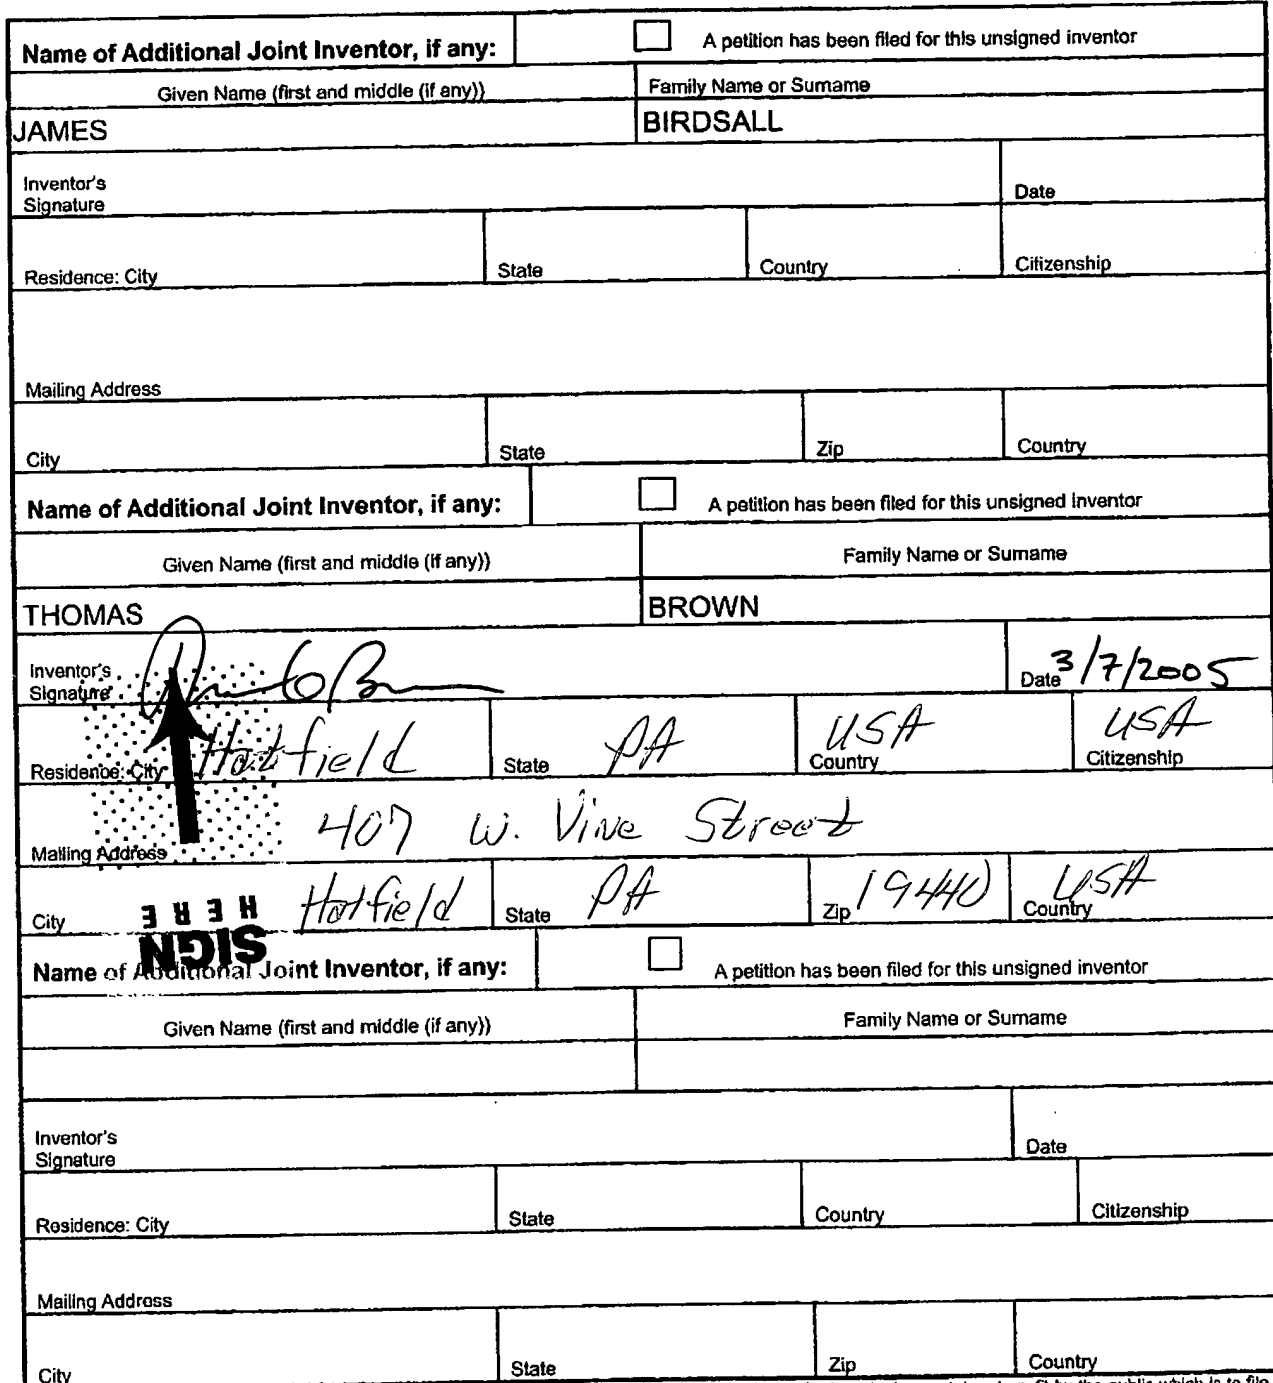 Name of Additional Joint Inventor, if any: A petition has been filed for this unsigned inventor
Given Name (first and middle (if any)) Family Name or Surname
JAMES BIRDSALL
Inventor's
Signature Date
Residence: City State Country Citizenship
Mailing Address
City State Zip Country
Name of Additional Joint Inventor, if any: A petition has been filed for this unsigned inventor
Given Name (first and middle (if any)) Family Name or Surname
THOMAS BROWN
Inventor's
Signature Date 3/7/2005
Residence: City Hatfield State PA USA Country USA Citizenship
Mailing Address 407 W. Vine Street
City Hatfield State PA Zip 19440 USA Country
SIGN
HERE
Name of Additional Joint Inventor, if any: A petition has been filed for this unsigned inventor
Given Name (first and middle (if any)) Family Name or Surname
Inventor's
Signature Date
Residence: City State Country Citizenship
Mailing Address
City State Zip Country
by the public which is to file